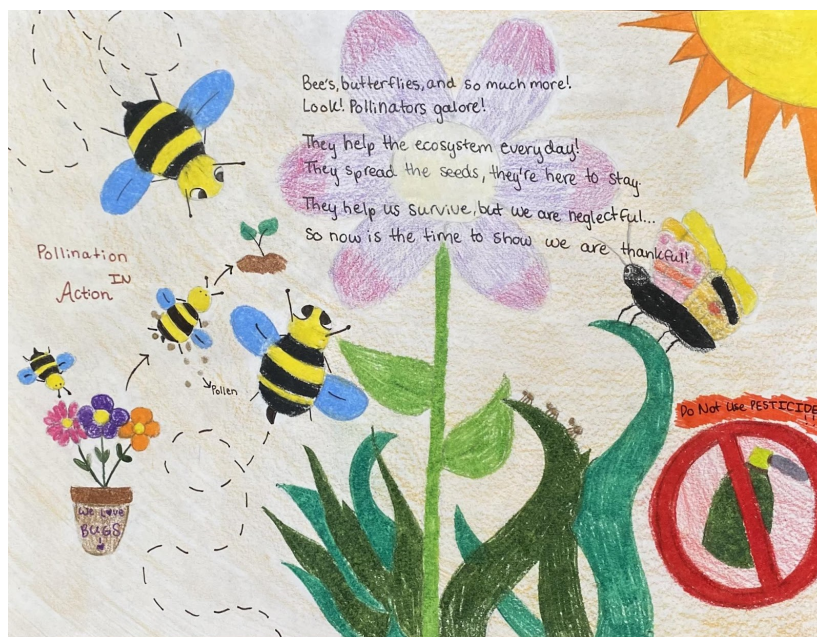 Bee's, butterflies, and so much more!
Look! Pollinators galore!
They help the ecosystem everyday!
They spread the seeds, they're here to stay.
They help us survive, but we are neglectful...
So now is the time to show we are thankful!
Pollination
IN
Action
Pollen
We Love
BUGS
Do Not Use PESTICIDE
!!